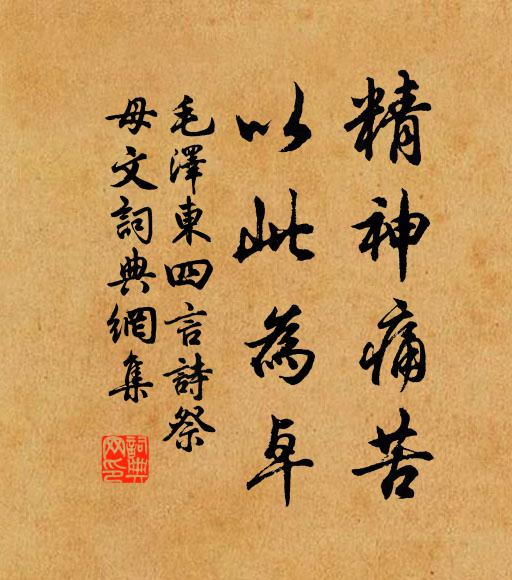 精神痛苦
以此為卓
毛澤東四言詩祭
母文詞典網集
詞典
网印